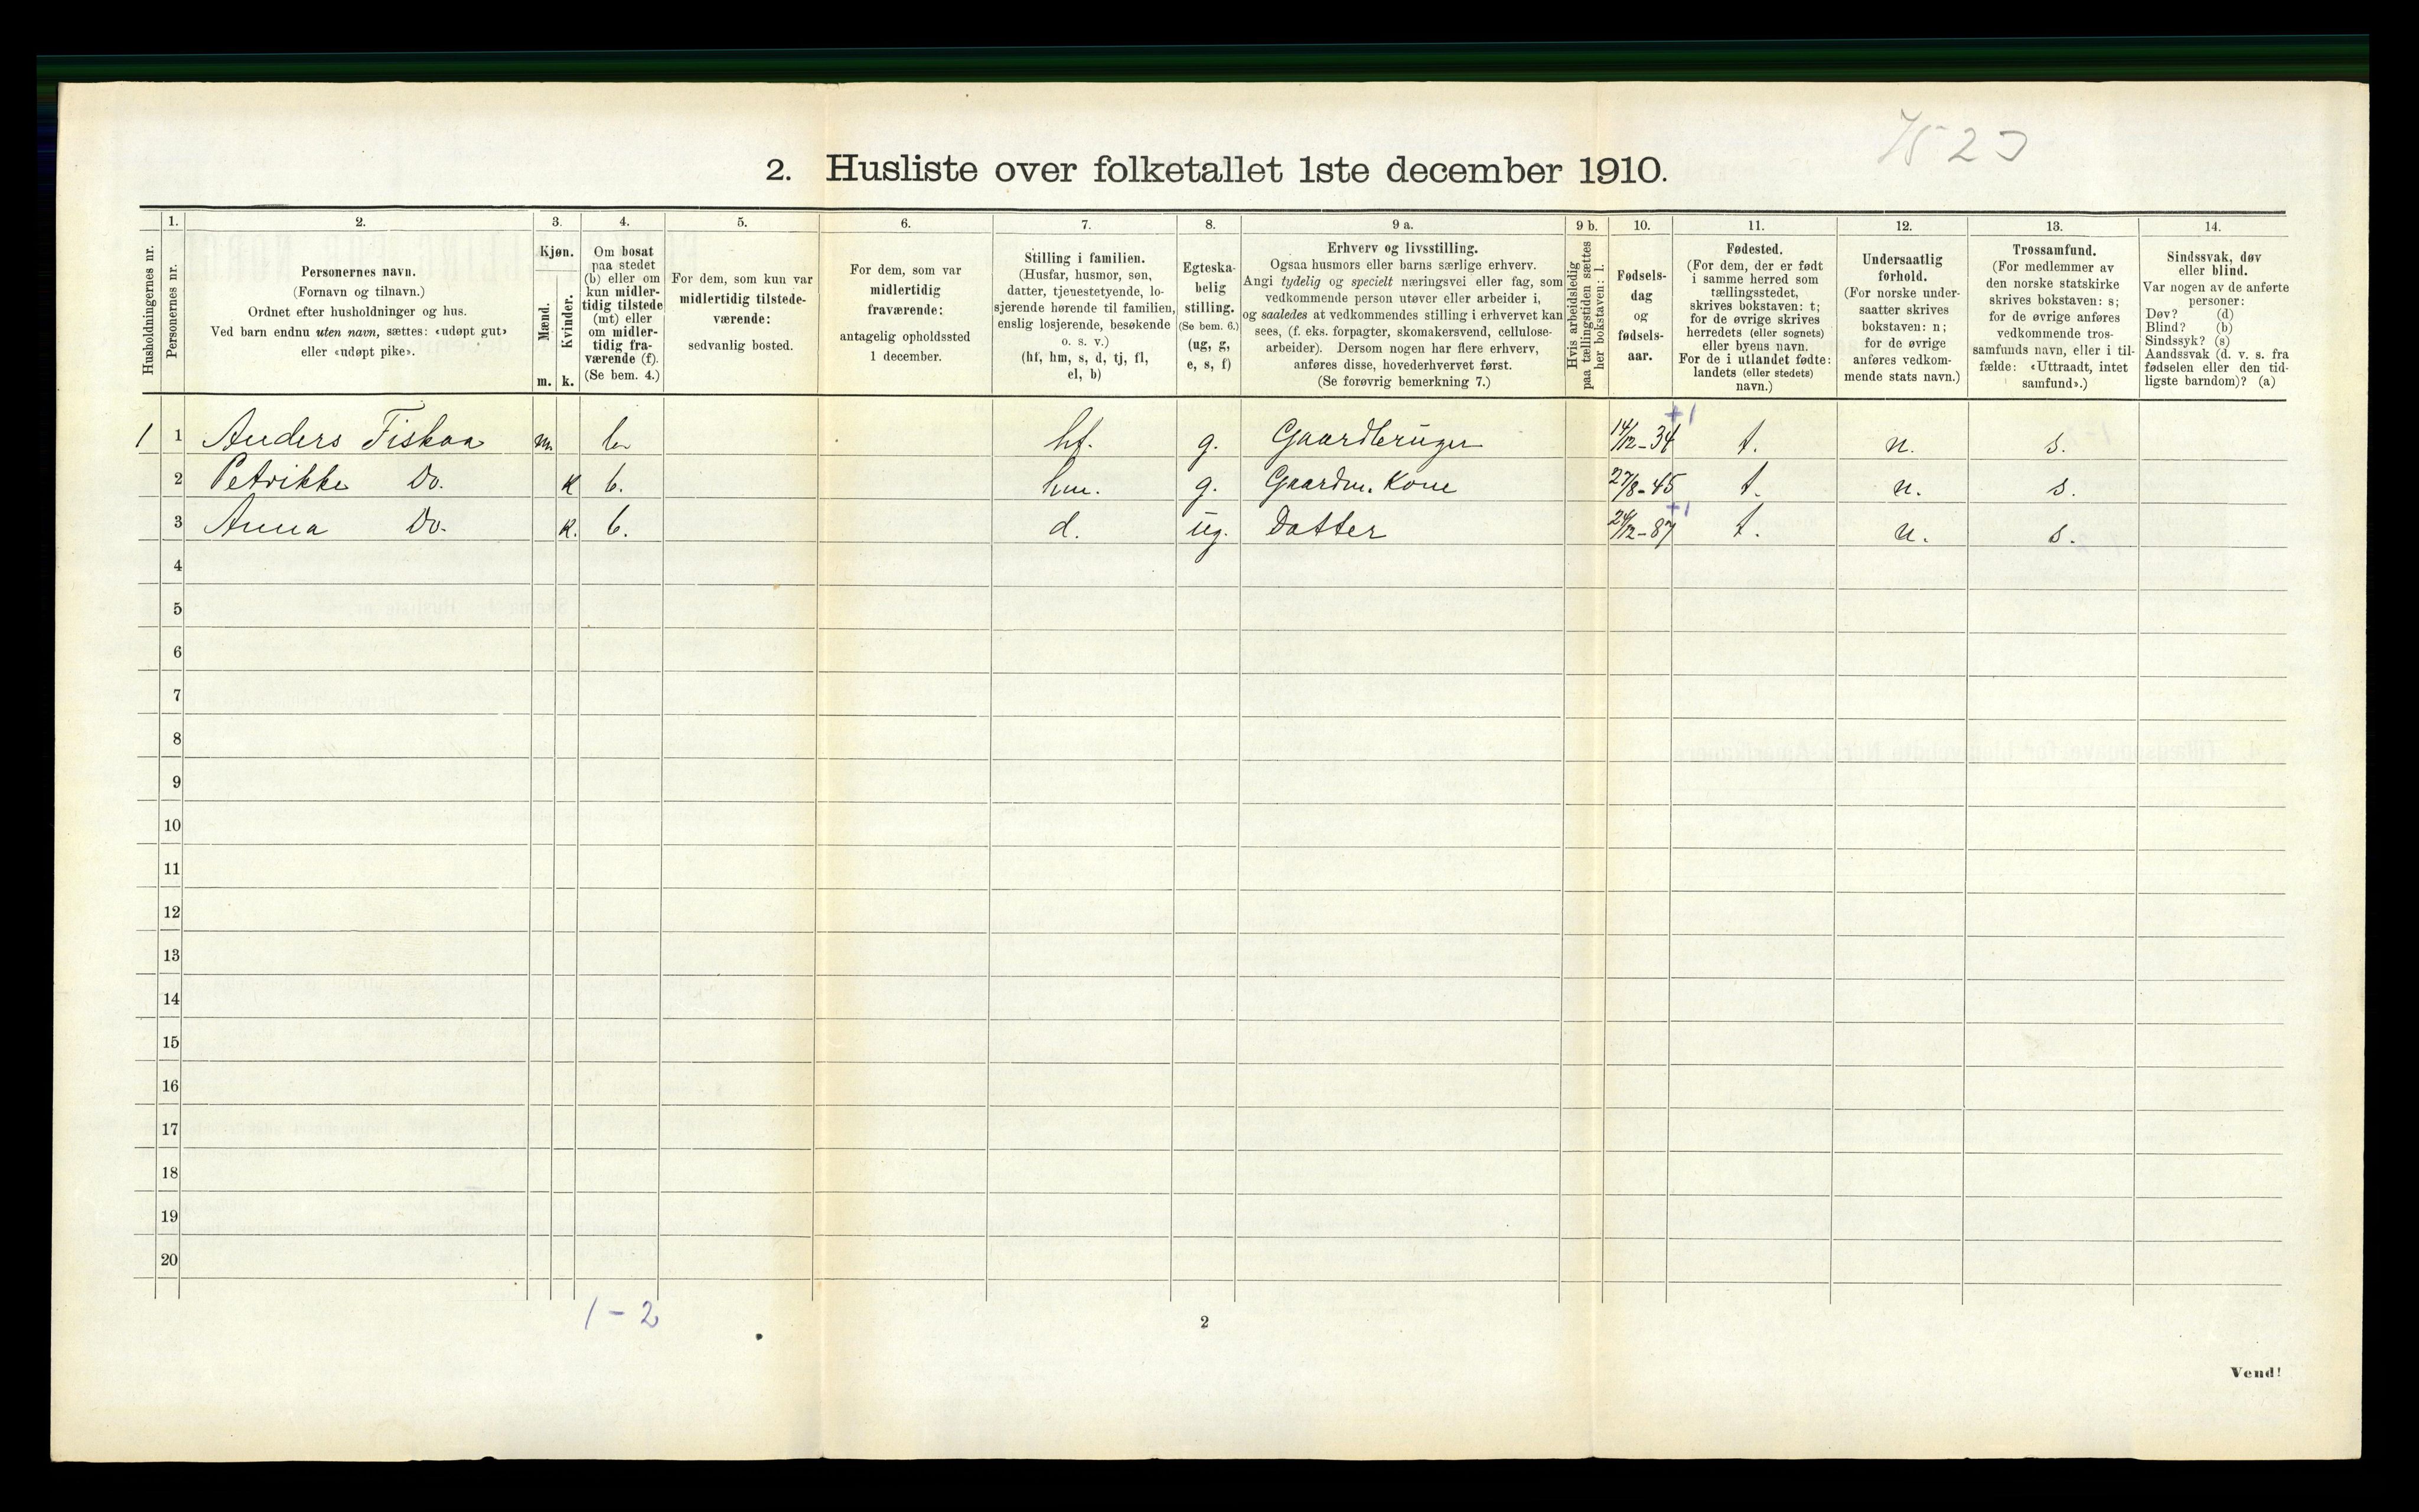 2. Husliste over folketallet 1ste december 1910.
Husholdningernes nr.
1.
Personernes nr.
2.
Personernes navn.
(Fornavn og tilnavn.)
Ordnet efter husholdninger og hus.
Ved barn endnu uten navn, sættes: «udøpt gut»
eller «udøpt pike».
3.
Kjøn.
Mænd.
Kvinder.
m. k.
4.
Om bosat
paa stedet
(b) eller om
kun midler-
tidig tilstede
(mt) eller
om midler-
tidig fra-
værende (f).
(Se bem. 4.)
5.
For dem, som kun var
midlertidig tilstede-
værende:
sedvanlig bosted.
6.
For dem, som var
midlertidig
fraværende:
antagelig opholdssted
1 december.
7.
Stilling i familien.
(Husfar, husmor, søn,
datter, tjenestetyende, lo-
sjerende hørende til familien,
enslig losjerende, besøkende
o. s. v.)
(hf, hm, s, d, tj, fl,
el, b)
8.
Egteska-
belig
stilling.
(Se bem. 6.)
(ug, g,
e, s, f)
9 a.
Erhverv og livsstilling.
Ogsaa husmors eller barns særlige erhverv.
Angi tydelig og specielt næringsvei eller fag, som
vedkommende person utøver eller arbeider i,
og saaledes at vedkommendes stilling i erhvervet kan
sees, (f. eks. forpagter, skomakersvend, cellulose-
arbeider). Dersom nogen har flere erhverv,
anføres disse, hovederhvervet først.
(Se forøvrig bemerkning 7.)
9 b.
Hvis arbeidsledig
paa tællingstiden sættes
her bokstaven: l.
10.
Fødsels-
dag
og
fødsels-
aar.
11.
Fødested.
(For dem, der er født
i samme herred som
tællingsstedet,
skrives bokstaven: t;
for de øvrige skrives
herredets (eller sognets)
eller byens navn.
For de i utlandet fødte:
landets (eller stedets)
navn.)
12.
Undersaatlig
forhold.
(For norske under-
saatter skrives
bokstaven: n;
for de øvrige
anføres vedkom-
mende stats navn.)
13.
Trossamfund.
(For medlemmer av
den norske statskirke
skrives bokstaven: s;
for de øvrige anføres
vedkommende tros-
samfunds navn, eller i til-
fælde: «Uttraadt, intet
samfund».)
14.
Sindssvak, døv
eller blind.
Var nogen av de anførte
personer:
Døv? (d)
Blind? (b)
Sindssyk? (s)
Aandssvak (d. v. s. fra
fødselen eller den tid-
ligste barndom)? (a)
+1
1 1 Anders Fiskaa m. b. hf. g. Gaardbruger 14/12-34 t. n. s.
2 Petrikke Do. k b. hm. g. Gaardm. Kone 27/8-45 t. n. s.
+1
3 Anna Do. k. b. d. ug. Datter 24/12-87 t. n. s.
4
5
6
7
8
9
10
11
12
13
14
15
16
17
18
19
20
1-2
2
Vend!